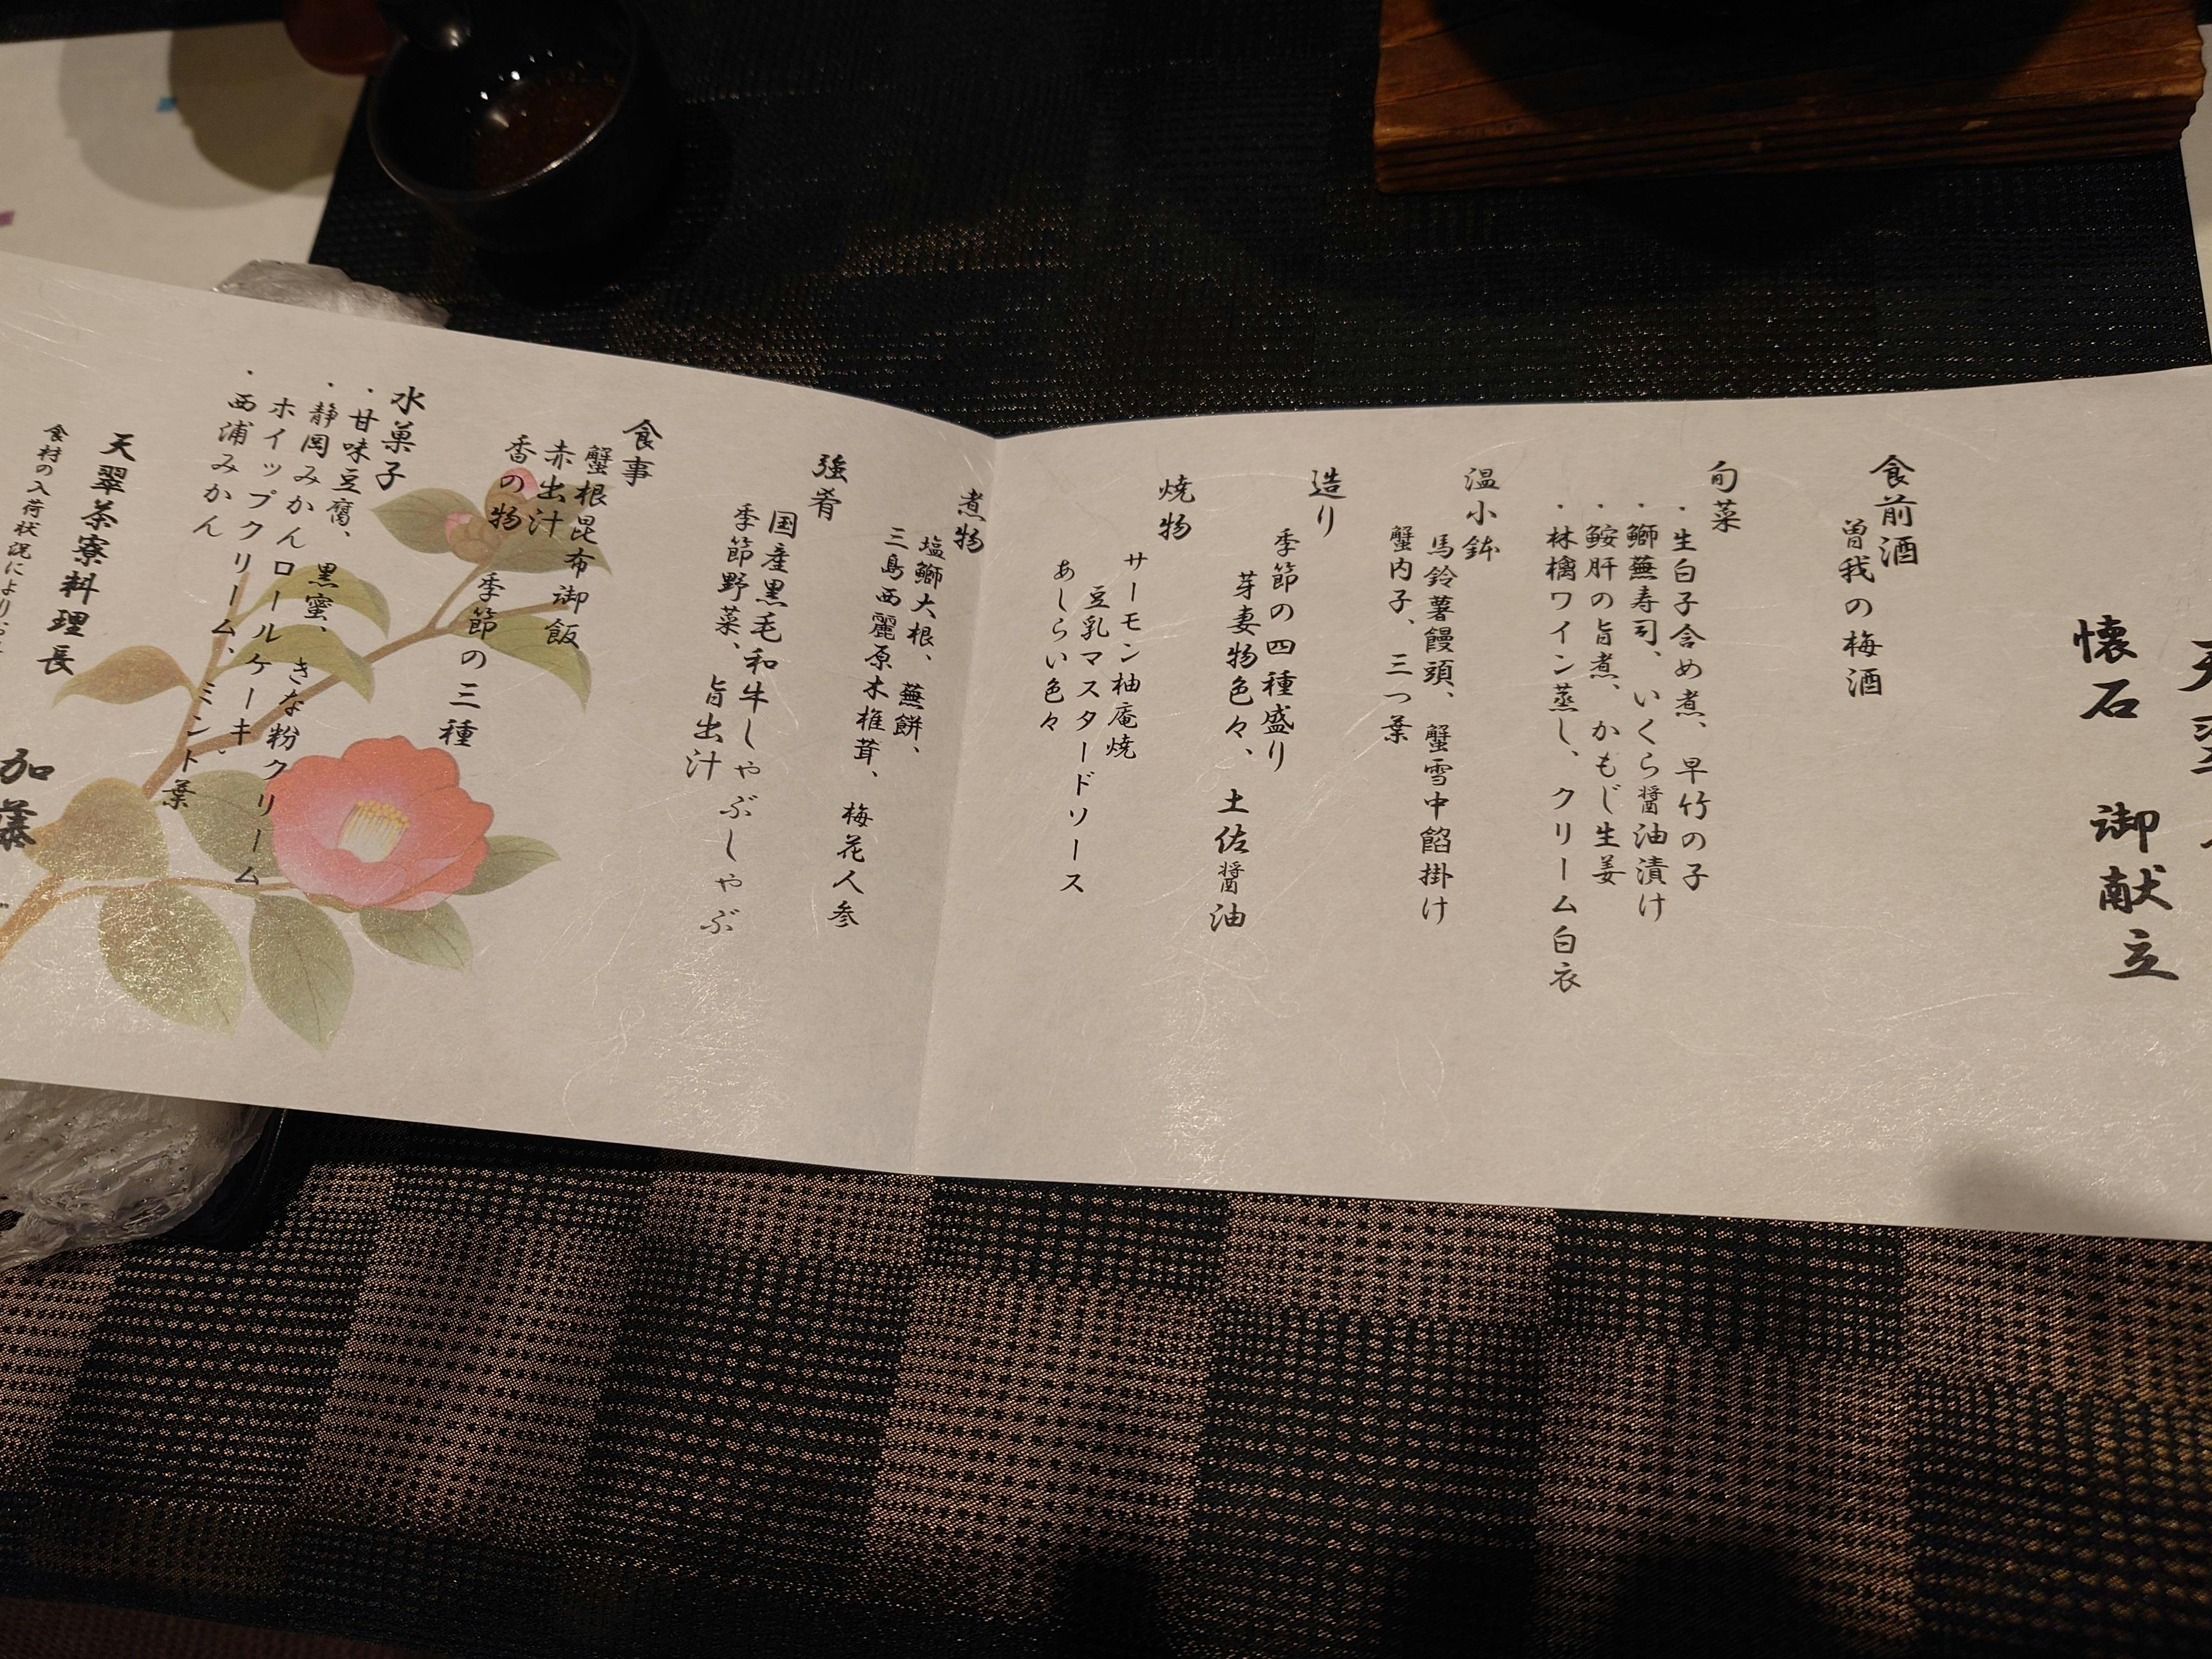 懐石 御献立
食前酒
曽我の梅酒
旬菜
・生白子含め煮、早竹の子
・鰤蕪寿司、いくら醤油漬け
・鮟肝の旨煮、かもじ生姜
・林檎ワイン蒸し、クリーム白衣
温小鉢
馬鈴薯饅頭、蟹雪中餡掛け
蟹内子、三つ葉
造り
季節の四種盛り
芽妻物色々、土佐醤油
焼物
サーモン柚庵焼
豆乳マスタードソース
あしらい色々
煮物
塩鰤大根、蕪餅、
三島西麗原木椎茸、梅花人参
強肴
国産黒毛和牛しゃぶしゃぶ
季節野菜、旨出汁
食事
蟹根昆布御飯
赤出汁
香の物 季節の三種
水菓子
・甘味豆腐、黒蜜、きな粉クリーム
・静岡みかんロールケーキ、
ホイップクリーム、ミント葉
・西浦みかん
天翠茶寮料理長
加藤
食材の入荷状況により